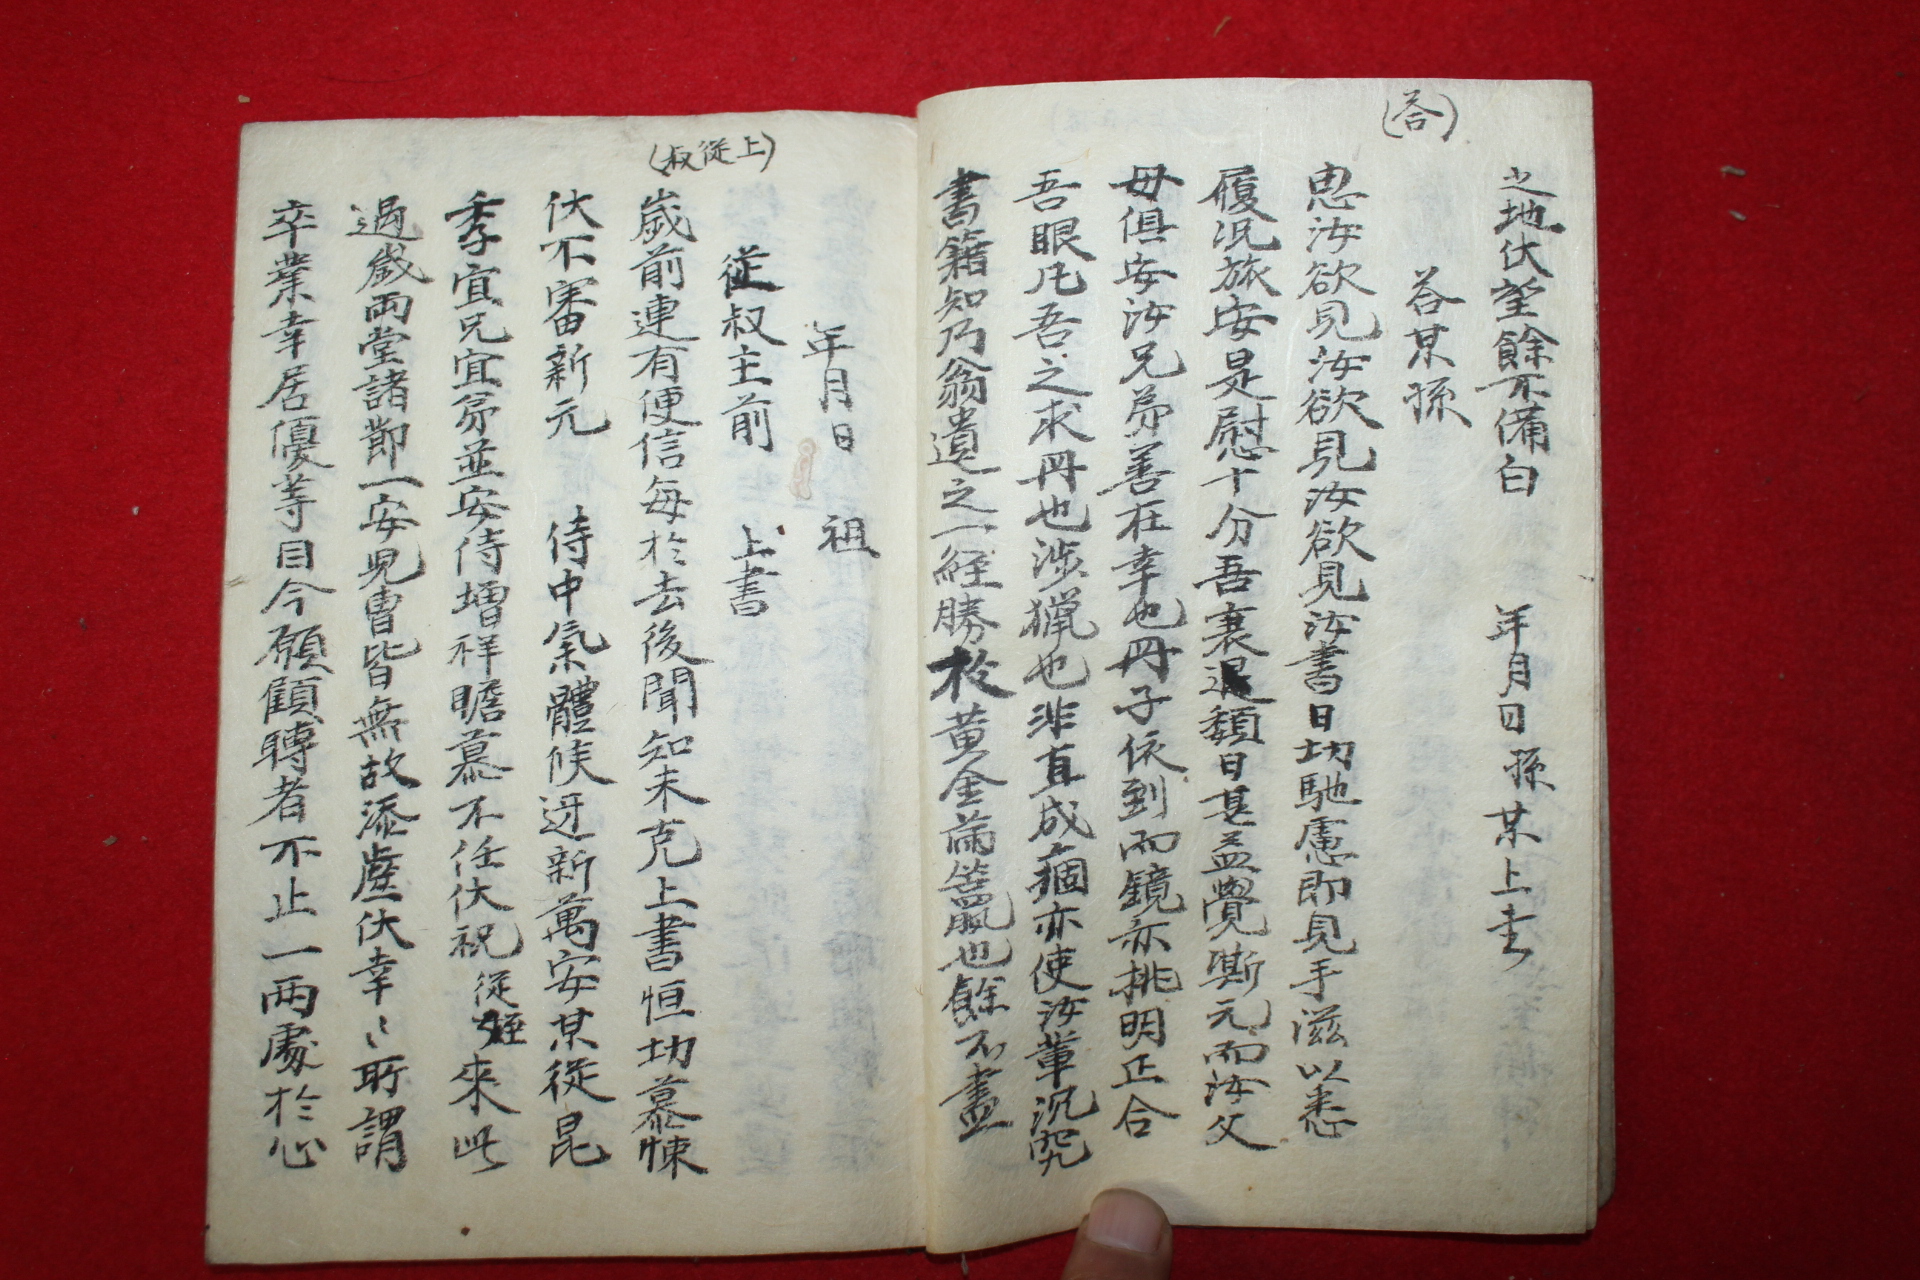 之地伏望餘不備白 年月日孫某上書
(答)
答某孫
思汝欲見汝欲見汝欲見汝書日切馳慮即見手滋以悉
履況旅安是慰十分吾衰退頹日甚益覺澌元而汝父
母俱安汝兄弟善在幸也丹子依到而鏡亦挑明正合
吾眼凡吾之求丹也涉獵也非直成痼亦使汝輩沉究
書籍知乃翁遺之一經勝於黃金滿籝也餘不盡
年月日 祖
(上從叔)
從叔主前 上書
歲前連有便信每於去後聞知未克上書恒切慕悚
伏不審新元 侍中氣體候迓新萬安某從昆
季宜兄宜弟並安侍增祥瞻慕不任伏祝從姪來此
過歲兩堂諸節一安兒曹皆無故添慶伏幸〻所謂
卒業幸居優等目今願顧轉者不止一兩處於心